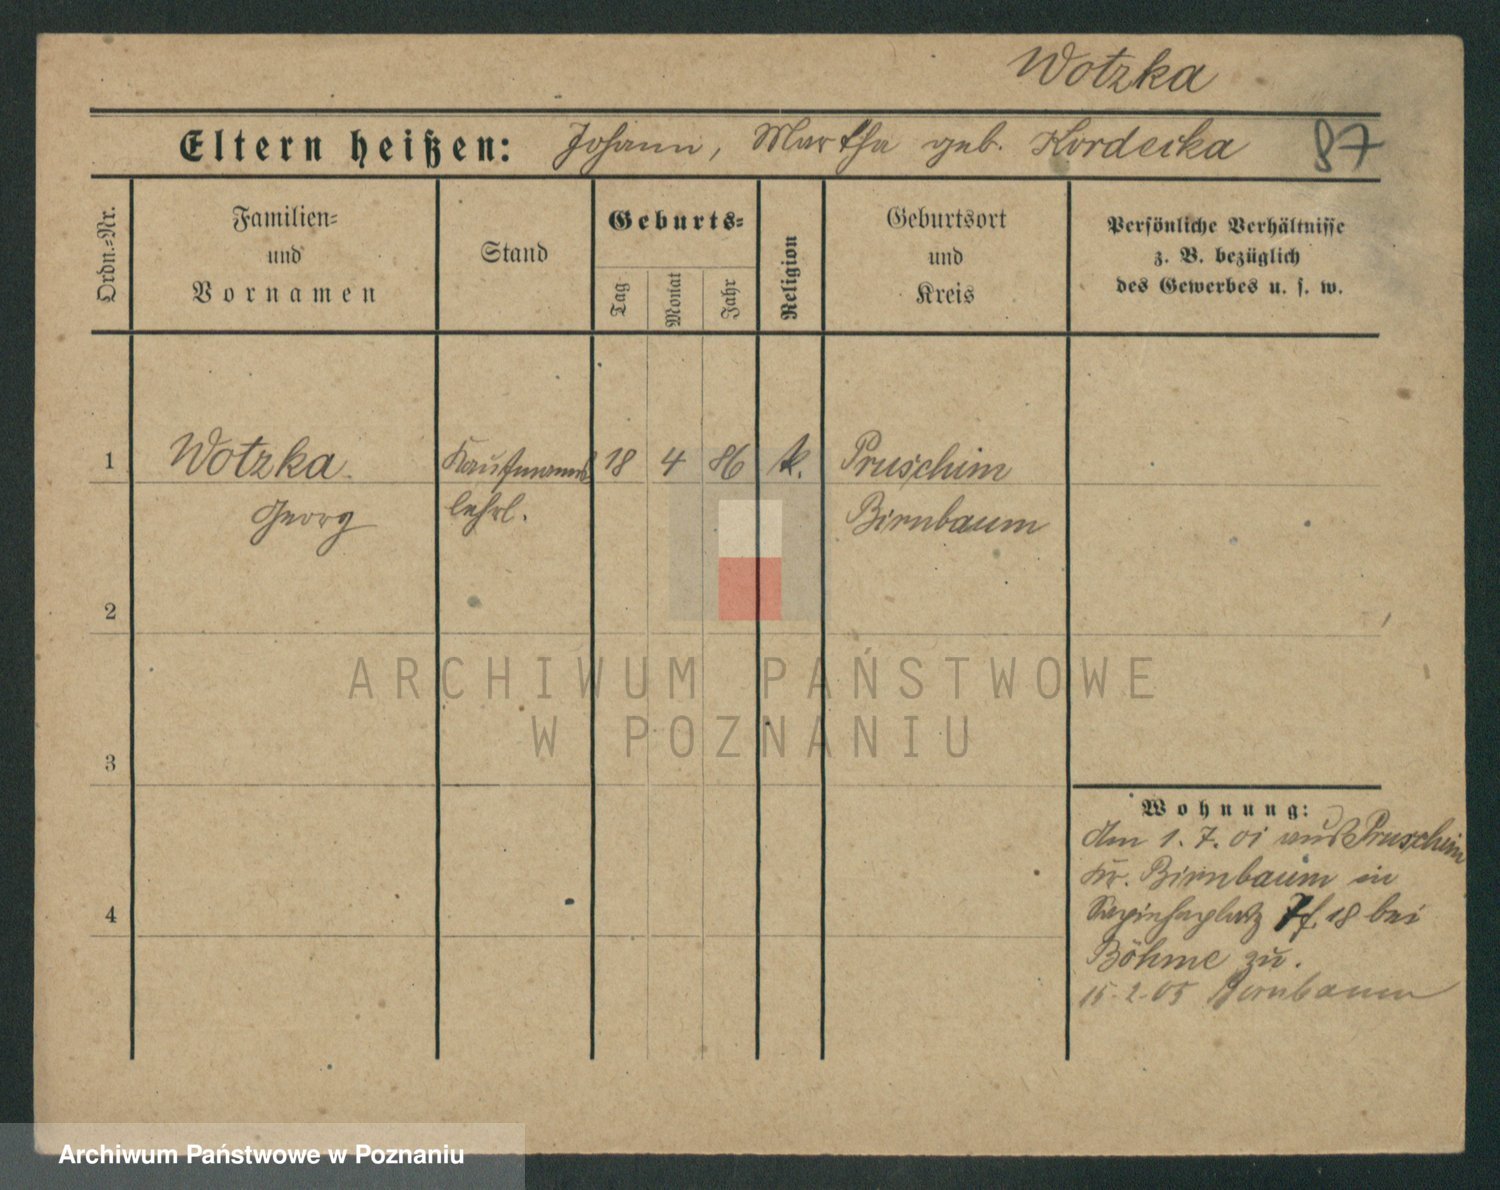 Wotzka
Eltern heißen: Johann, Martha geb. Kordecka 87
Ordn.-Nr.
Familien-
und
Vornamen
Stand
Geburts-
Tag
Monat
Jahr
Religion
Geburtsort
und
Kreis
Persönliche Verhältnisse
z. B. bezüglich
des Gewerbes u. s. w.
1 Wotzka Kaufmanns 18 4 86 k. Pruschim
Georg lehrl. Birnbaum
2
ARCHIWUM PAŃSTWOWE
W POZNANIU
3
4
Wohnung:
Am 1. 7. 01 aus Pruschim
Kr. Birnbaum in
Sapiehaplatz 18 bei
Böhme zu.
15-2-05 Birnbaum
Archiwum Państwowe w Poznaniu